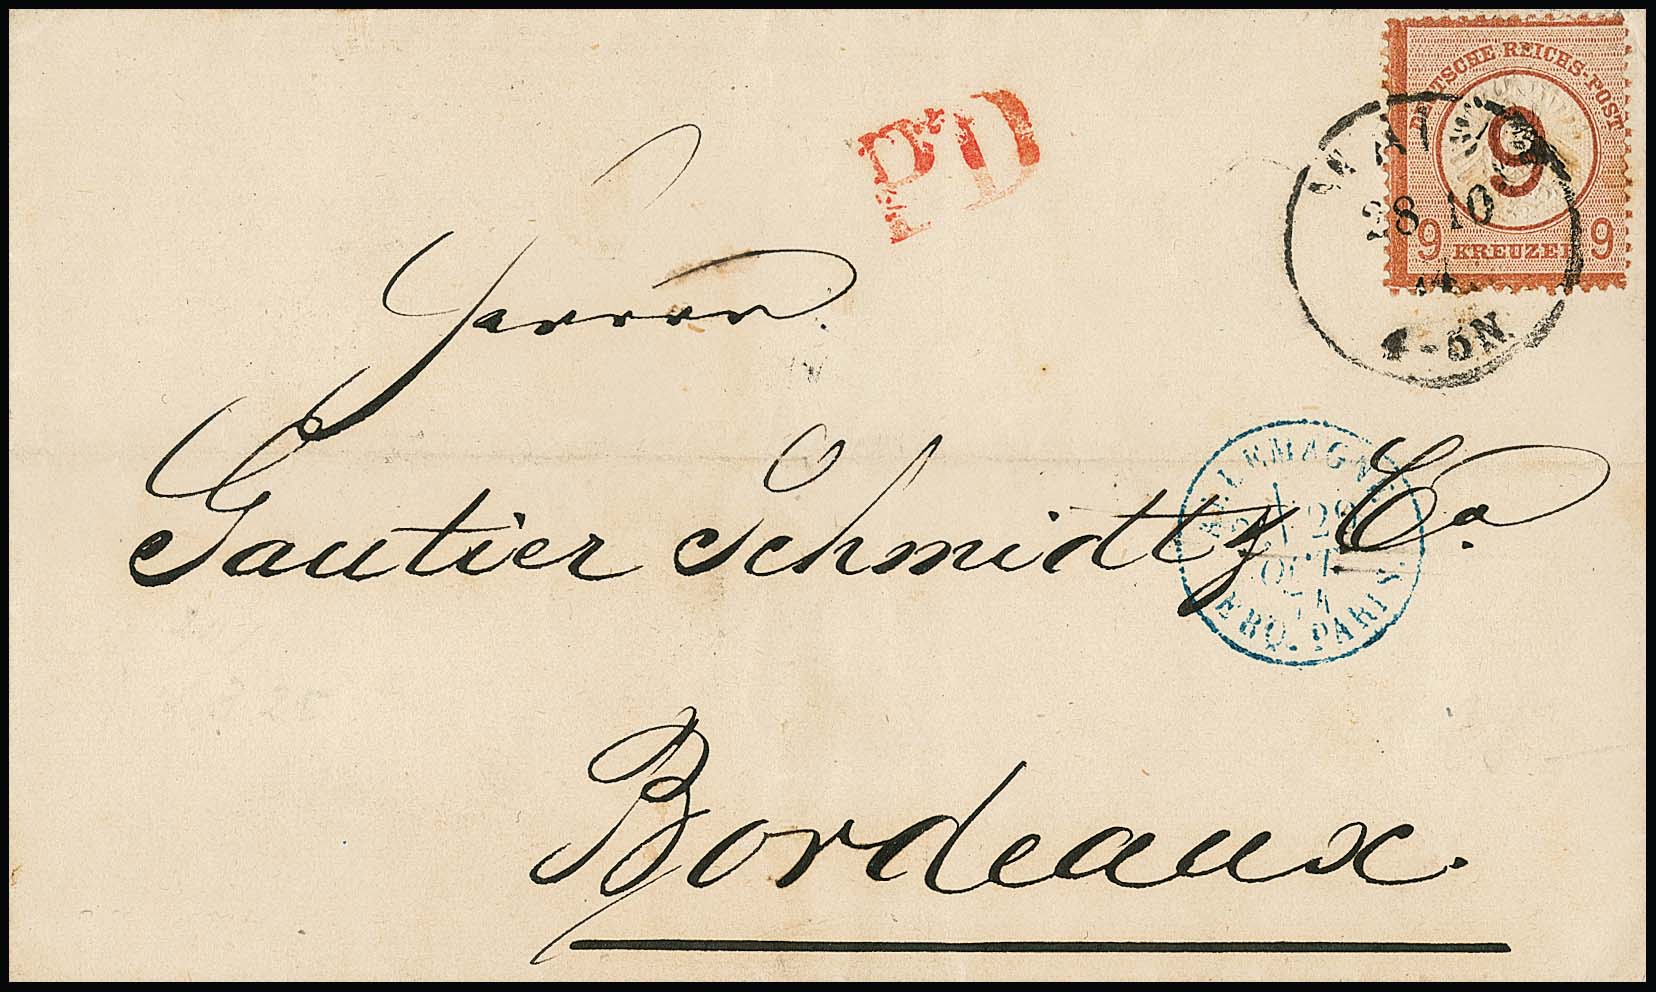 DEUTSCHE REICHS-POST
9
9 KREUZER 9
28 10
4-5N.
PD
Herren
Gautier Schmidtz Co.
ALLEMAGNE
29
OCT
74
ERQ. PARIS
Bordeaux.